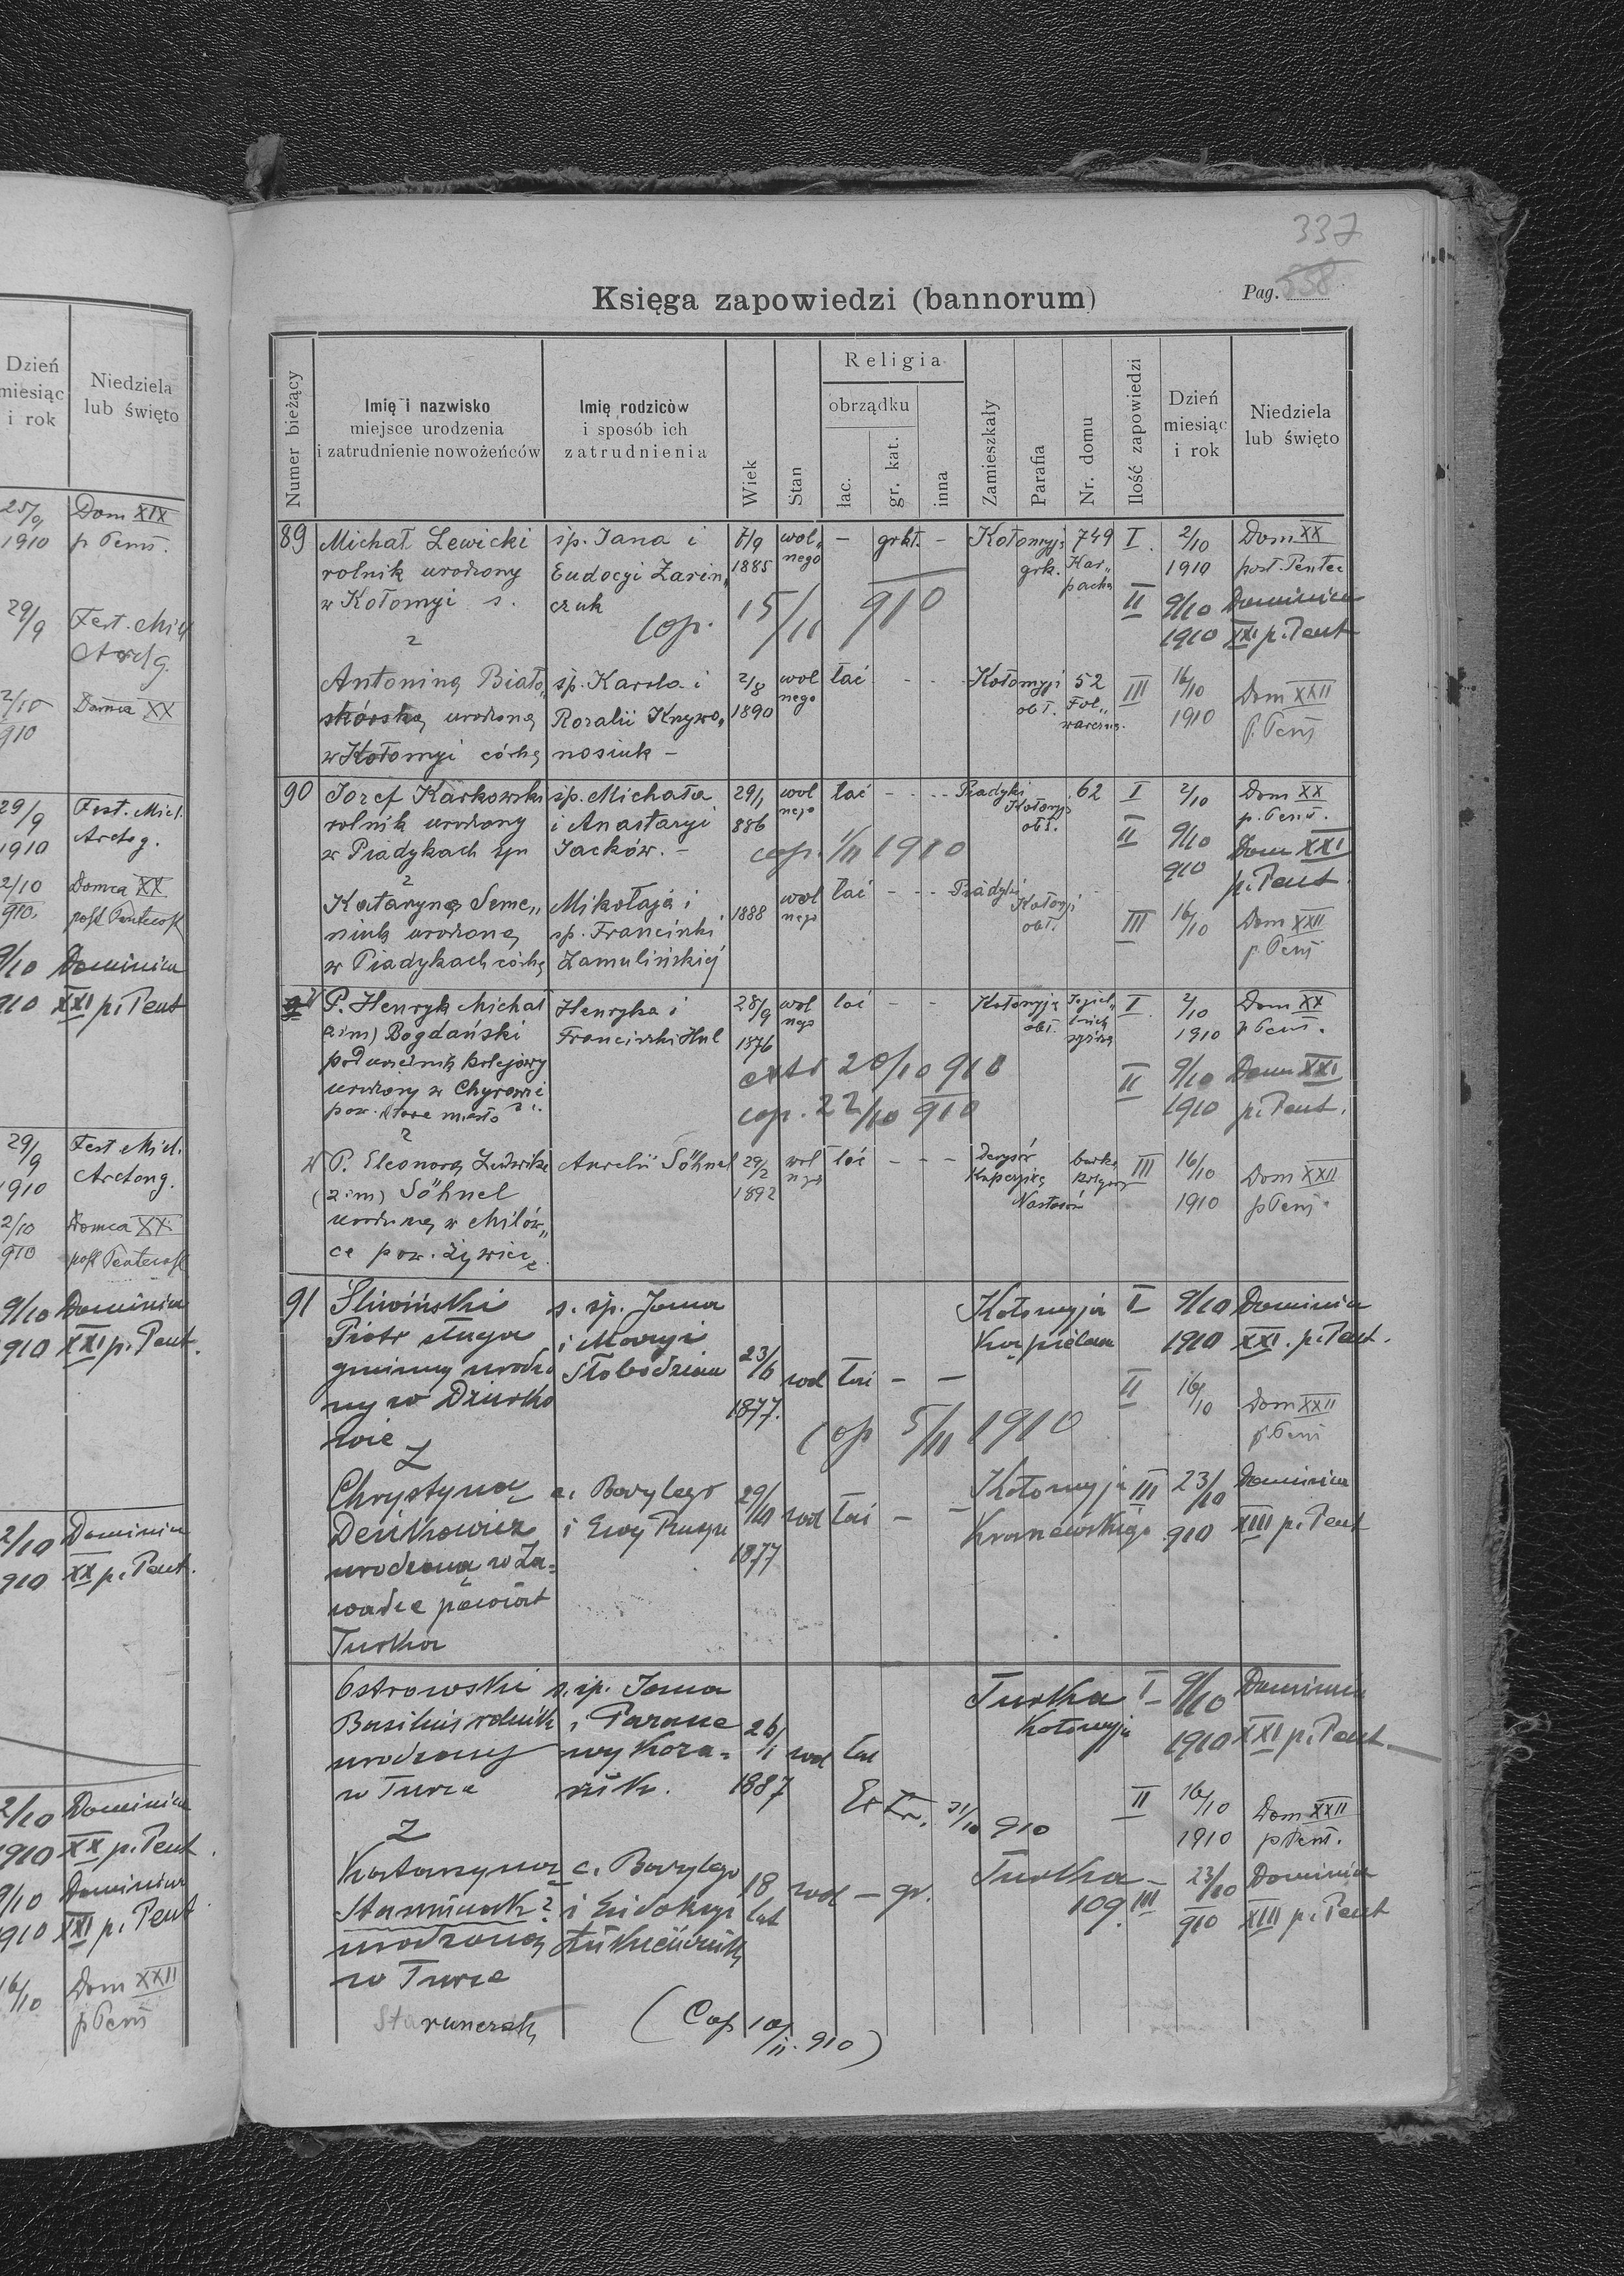 Dzień
miesiąc
i rok
Niedziela
lub święto
25/9
1910
Dom XIX
p Pent.
29/9
Fest. Mich
Arch g.
2/10
910
Domca XX
29/9
1910
Fest. Mich.
Archg.
2/10
910.
Domca XX
post Pentecost
9/10
910
Dominica
XXI p. Pent
29/9
1910
Fest Mich.
Archang.
2/10
910
Domca XX
post Pentecost
9/10
910
Dominica
XXI p. Pent.
2/10
910
Dominica
XX p. Pent.
2/10
1910
Dominica
XX p. Pent.
9/10
1910
Dominica
XXI p. Pent
16/10
Dom XXII
p Pent
337
Księga zapowiedzi (bannorum)
Pag. 338
Numer bieżący
Imię i nazwisko
miejsce urodzenia
i zatrudnienie nowożeńców
Imię rodziców
i sposób ich
zatrudnienia
Wiek
Stan
Religia
obrządku
łac.
gr. kat.
inna
Zamieszkały
Parafia
Nr. domu
Ilość zapowiedzi
Dzień
miesiąc
i rok
Niedziela
lub święto
89 Michał Lewicki
rolnik urodzony
w Kołomyi s.
z
śp. Jana i
Eudocyi Zarin„
czuk
7/9
1885
wol„
nego
– grkt. –
Kołomyja
grk.
749
Kar„
packa
I. 2/10
1910
Dom XX
post. Pentec
II 9/10
1910
Dominica
XXI p. Pent
cop. 15/11 910
Antoniną Biało„
skórską urodzoną
w Kołomyi córką
śp. Karola i
Rozalii Knywo„
nosiuk –
2/8
1890
wol
nego
łać - - -
Kołomyi
obł.
52
Fol„
warczna.
III 16/10
1910
Dom XXII
p. Pent
90 Jozef Karkowski
rolnik urodzony
w Piadykach syn
z
śp. Michała
i Anastazyi
Jacków. –
29/1
886
wol
nego
łać - - -
Piadyki
Kołomyja
obł.
62
I 2/10
Dom XX
p. Pent.
II 9/10
910
Dom XXI
p. Pent.
cop. 1/11 1910
Katarzyną Seme„
niuk urodzoną
w Piadykach córką
Mikołaja i
śp. Franciszki
Zamulińskiéj
1888
wol
nego
łać - - -
Piadyki
Kołomyi
obł.
III 16/10
Dom XXII
p. Pent
P. Henryk Michał
(2 im) Bogdański
podurzędnik kolejowy
urodzony w Chyrowie
pow. Stare miasto
z
Henryka i
Franciszki Hul
28/9
1876
wol
nego
łać - -
Kołomyja
obł.
I 2/10
1910
Dom XX
p Pent.
II 9/10
1910
Dom XXI
p. Pent.
extr 20/10 910
cop. 22/10 910
P. Eleonorą Ludwiką
(2 im) Söhnel
urodzoną w Milów„
ce pow. Żywiec
Aurelii Söhnel
29/2
1892
wol
nego
łać - - -
III 16/10
1910
Dom XXII
p Pent.
91 Śliwiński
Piotr sługa
gminny urodzo
ny w Dziurko
wie
z
s. śp. Jana
i Maryi
Słobodzian
23/6
1877.
wol łać – –
Kołomyja
I 9/10
1910
Dominica
XXI. p. Pent.
II 16/10
Dom XXII
p. Pent
cop 5/11 1910
Chrystyną
Deńkowicz
urodzoną w Za-
wadce powiat
Turka
c. Bazylego
i Ewy
29/10
1877
wol łać – –
Kołomyja
III 23/10
910
Dominica
XIII p. Pent
Ostrowski
Basilius rolnik
urodzony
w Turce
z
s. śp. Jana
i Parane
wy Koza-
26/1
1887
wol łać
Turka
Kołomyja
I – 9/10
1910
Dominica
XXI p. Pent.
II 16/10
1910
Dom XXII
p Pent.
Extr. 31/10 910
Katarzyną
Staruńczak?
urodzoną
w Turce
c. Bazylego
i Eudokyi
18
lat
wol – gr.
Turka –
109.
III 23/10
910
Dominica
XIII p. Pent
(Cop 10/11. 910)